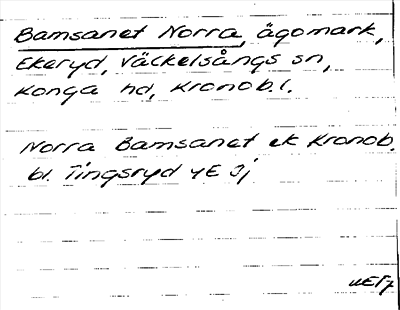 Bamsanet Norra, ägomark,
Ekeryd, Väckelsångs sn,
Konga hd, Kronob. l.
Norra Bamsanet ek Kronob.
bl. Tingsryd 4E 3j